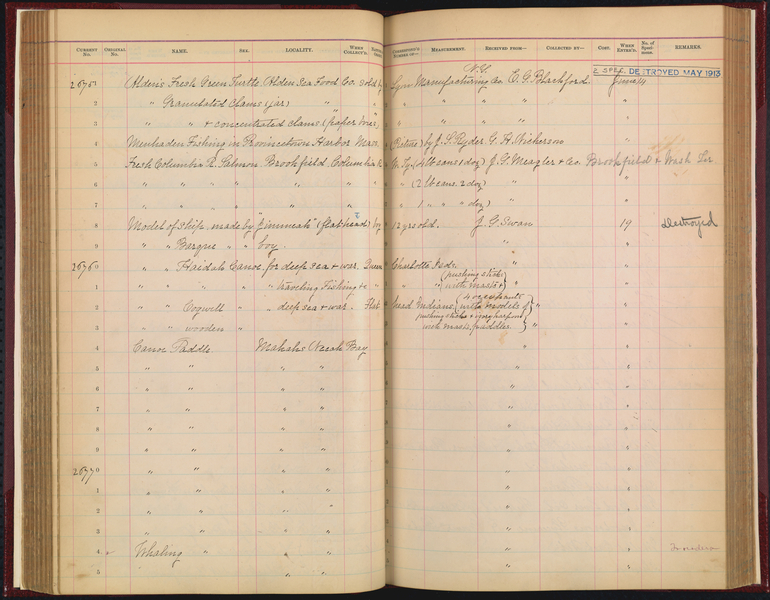 CURRENT No. ORIGINAL No. NAME. SEX. LOCALITY. WHEN COLLECT'D. MEASUREMENT. RECEIVED FROM— COLLECTED BY— COST. WHEN ENTER'D. No. of Speci-mens. REMARKS.
N.Y.
2 SPEC. DESTROYED MAY 1913
26751 Alden's Fresh Green Turtle. Alden Sea Food Co. sold by Lynn Manufacturing Co E. G. Blackford. June 14
2 " Granulated Clams (jar) " " " " " " "
3 " " + concentrated clams (paper boxes) " " " "
4 Menhaden Fishing in Provincetown Harbor Mass. (Picture) by J. P. Ryder. G. H. Nickerson "
5 Fresh Columbia R. Salmon. Brookfield, Columbia R. (4 lb cans 1 doz) J. G. Meagler + Co. Brookfield + Wash Ter
6 " " " " " " " (2 lb cans. 2 doz) " "
7 " " " " " " " 1 " " " doz) " "
8 Model of Ship. made by "Jimmeah" (flat head) boy 12 yrs old. J. G. Swan 19 Destroyed
9 " " Barque " " boy. " "
26760 " " Haidah Canoe for deep sea + war. Queen Charlotte Isds. " "
1 " " " " " traveling Fishing &c " " (pushing sticks with masts) "
2 " " Cogwell " " deep sea + war. Flat head Indians (4 occupants with models of pushing sticks + spray harpoons with masts, paddles) " "
3 " " wooden " "
4 Canoe Paddle. Makahs Neeah Bay " "
5 " " " " " "
6 " " " " " "
7 " " " " " "
8 " " " " " "
9 " " " " " "
26770 " " " " " "
1 " " " " " "
2 " " " " " "
3 " " " " " "
4 Whaling " " " " "
5 " " " "